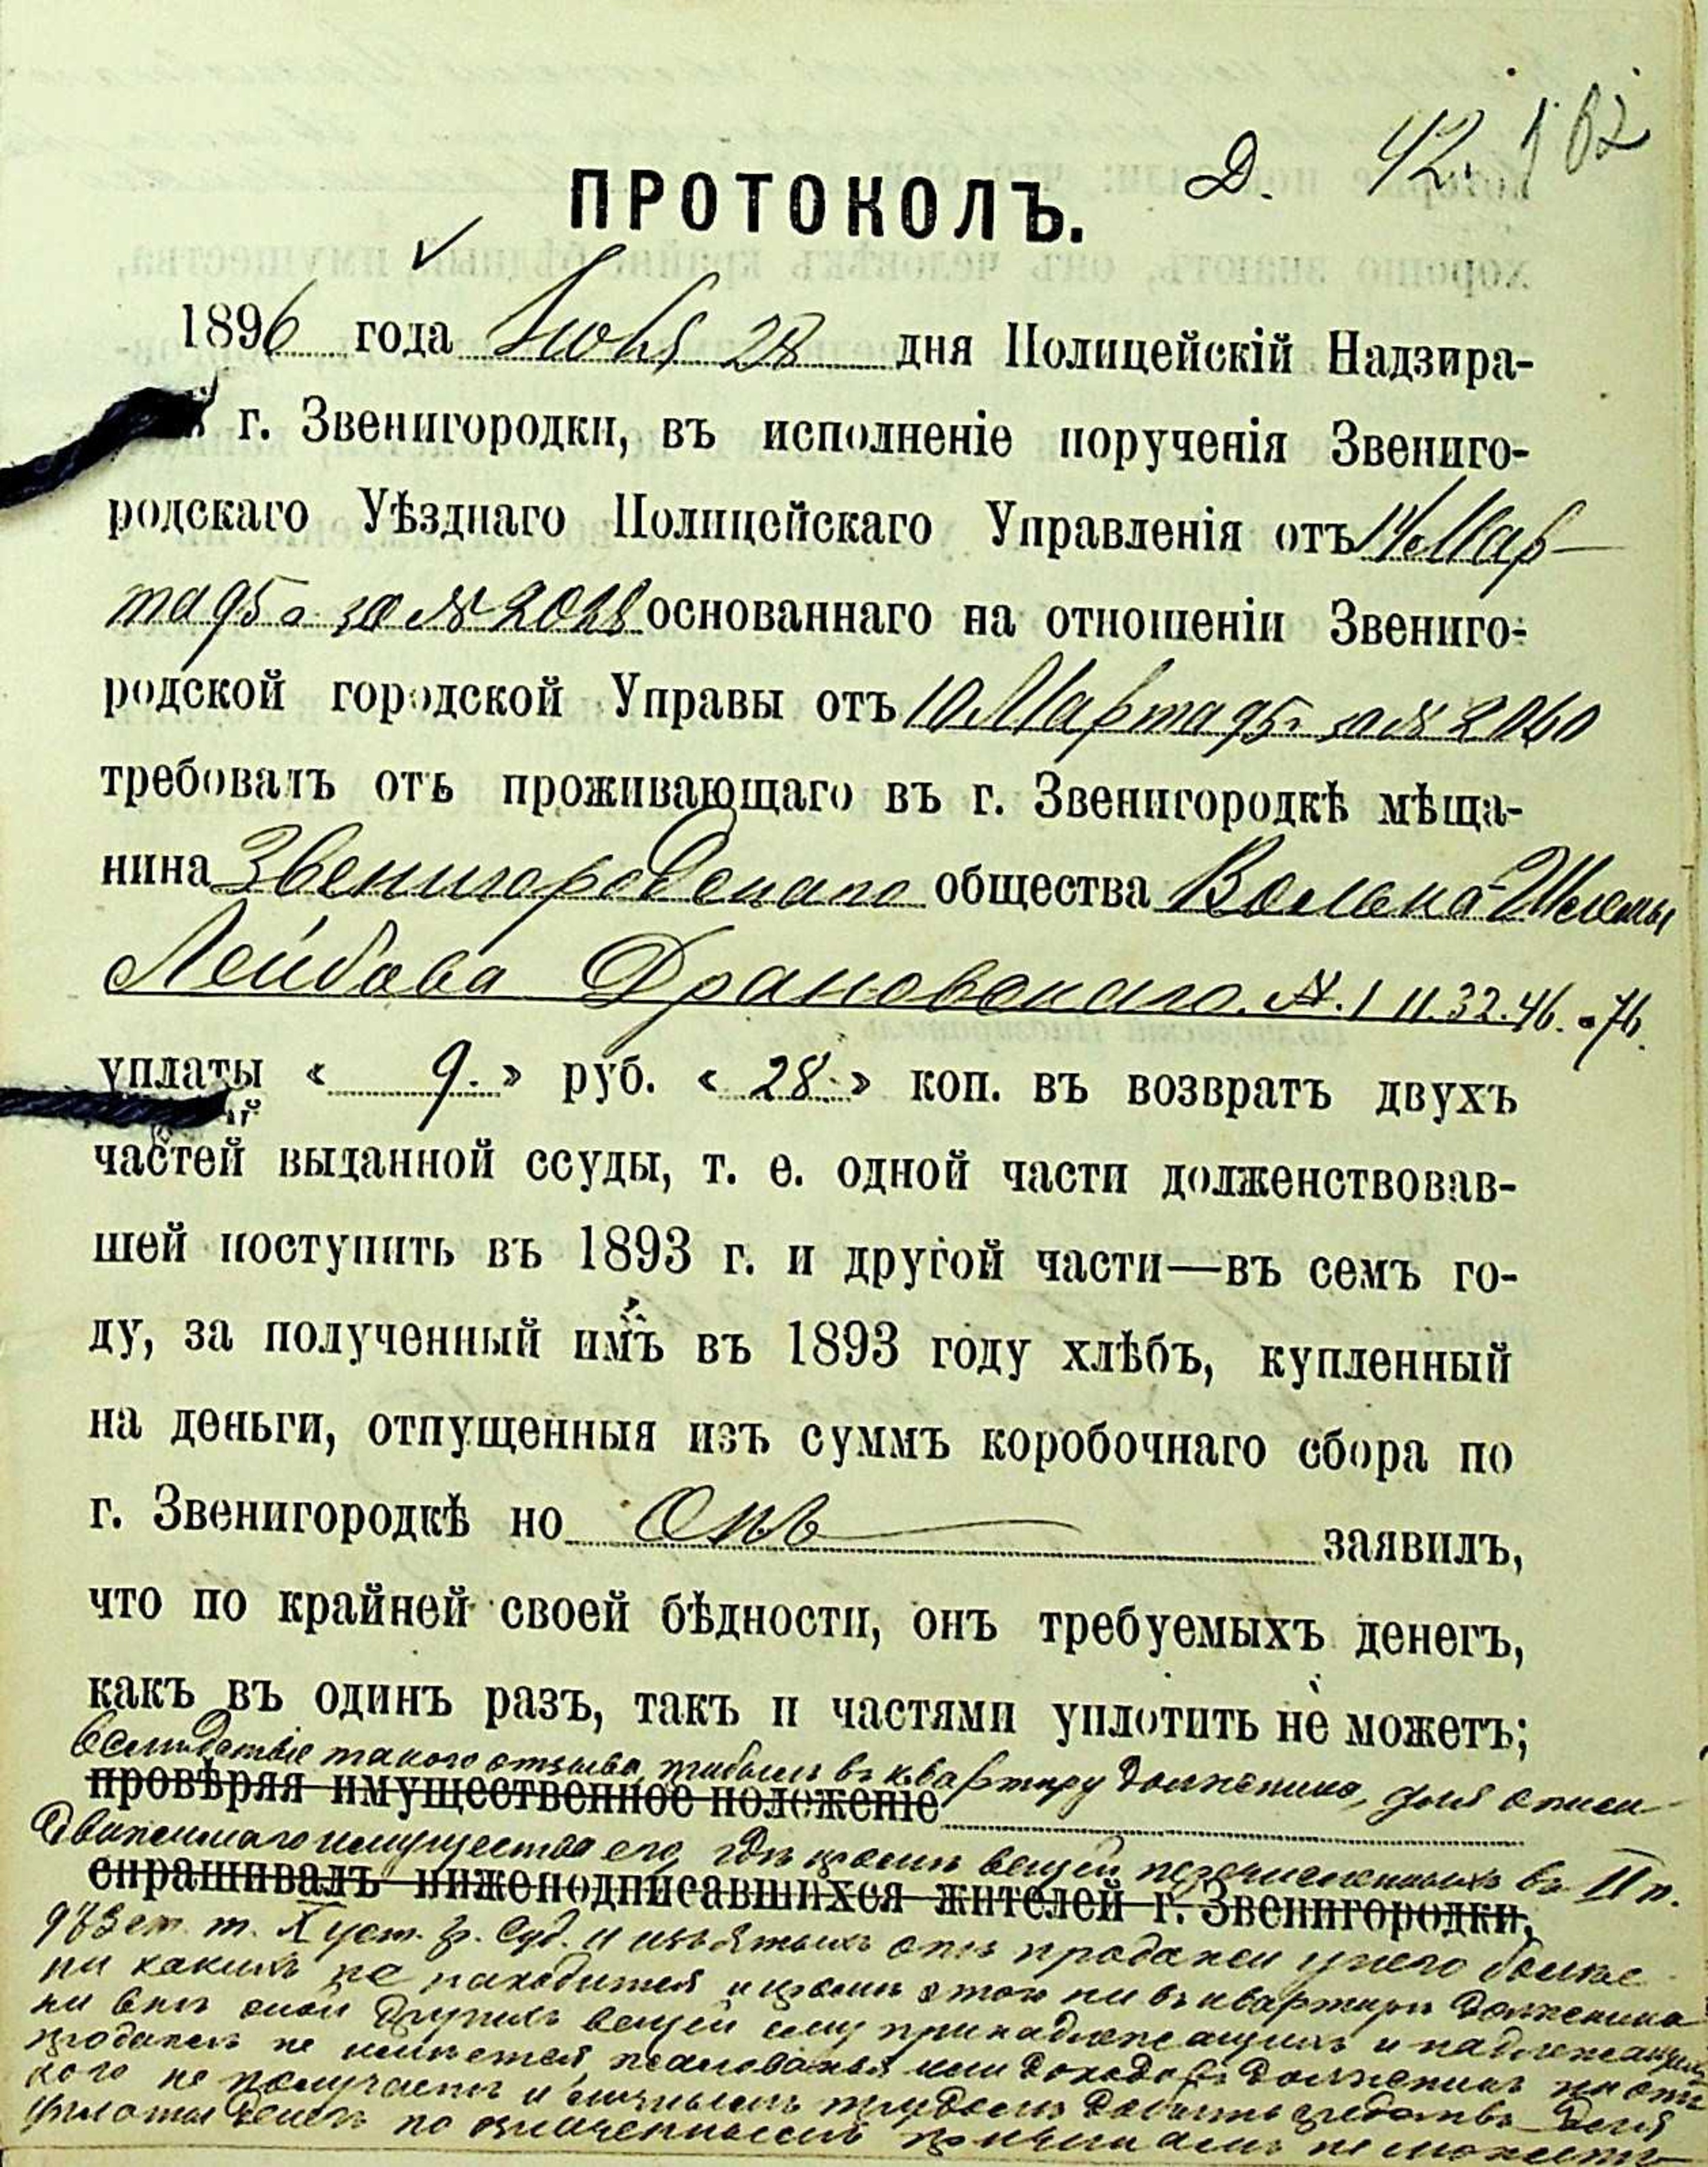 Д. 42. 162
ПРОТОКОЛЪ.
1896 года Іюня 28 дня Полицейскій Надзира-
г. Звенигородки, въ исполненіе порученія Звениго-
родскаго Уѣзднаго Полицейскаго Управленія отъ 14 Мар-
та 95 г. за № 2028 основаннаго на отношеніи Звениго-
родской городской Управы отъ 10 Марта 95 г. за № 2060
требовалъ отъ проживающаго въ г. Звенигородкѣ мѣща-
нина Звенигородскаго общества Волька-Шлемы
Лейбова Драновскаго. №. 1 11. 32. 46. 76.
уплаты « 9. » руб. « 28. » коп. въ возвратъ двухъ
частей выданной ссуды, т. е. одной части долженствовав-
шей поступить въ 1893 г. и другой части—въ семъ го-
ду, за полученный имъ въ 1893 году хлѣбъ, купленный
на деньги, отпущенныя изъ суммъ коробочнаго сбора по
г. Звенигородкѣ но Онъ заявилъ,
что по крайней своей бѣдности, онъ требуемыхъ денегъ,
какъ въ одинъ разъ, такъ и частями уплотить не можетъ;
вслѣдствіе такого отзыва, прибылъ въ квартиру должника, для описи
провѣряя имущественное положеніе
движимаго имущества его, гдѣ кромѣ вещей перечисленныхъ въ II п.
спрашивалъ нижеподписавшихся жителей г. Звенигородки,
973 ст. т. X уст. гр. суд. и изъятыхъ отъ продажи у него болѣе
ни какихъ не находится и кромѣ этого ни въ квартирѣ должника
ни внѣ оной другихъ вещей ему принадлежащихъ и надлежащихъ
продажѣ не имѣется, жалованья или доходовъ должникъ ни отъ
кого не получаетъ и личнымъ трудомъ добыть средствъ для
уплаты денегъ по означеннымъ причинамъ не можетъ